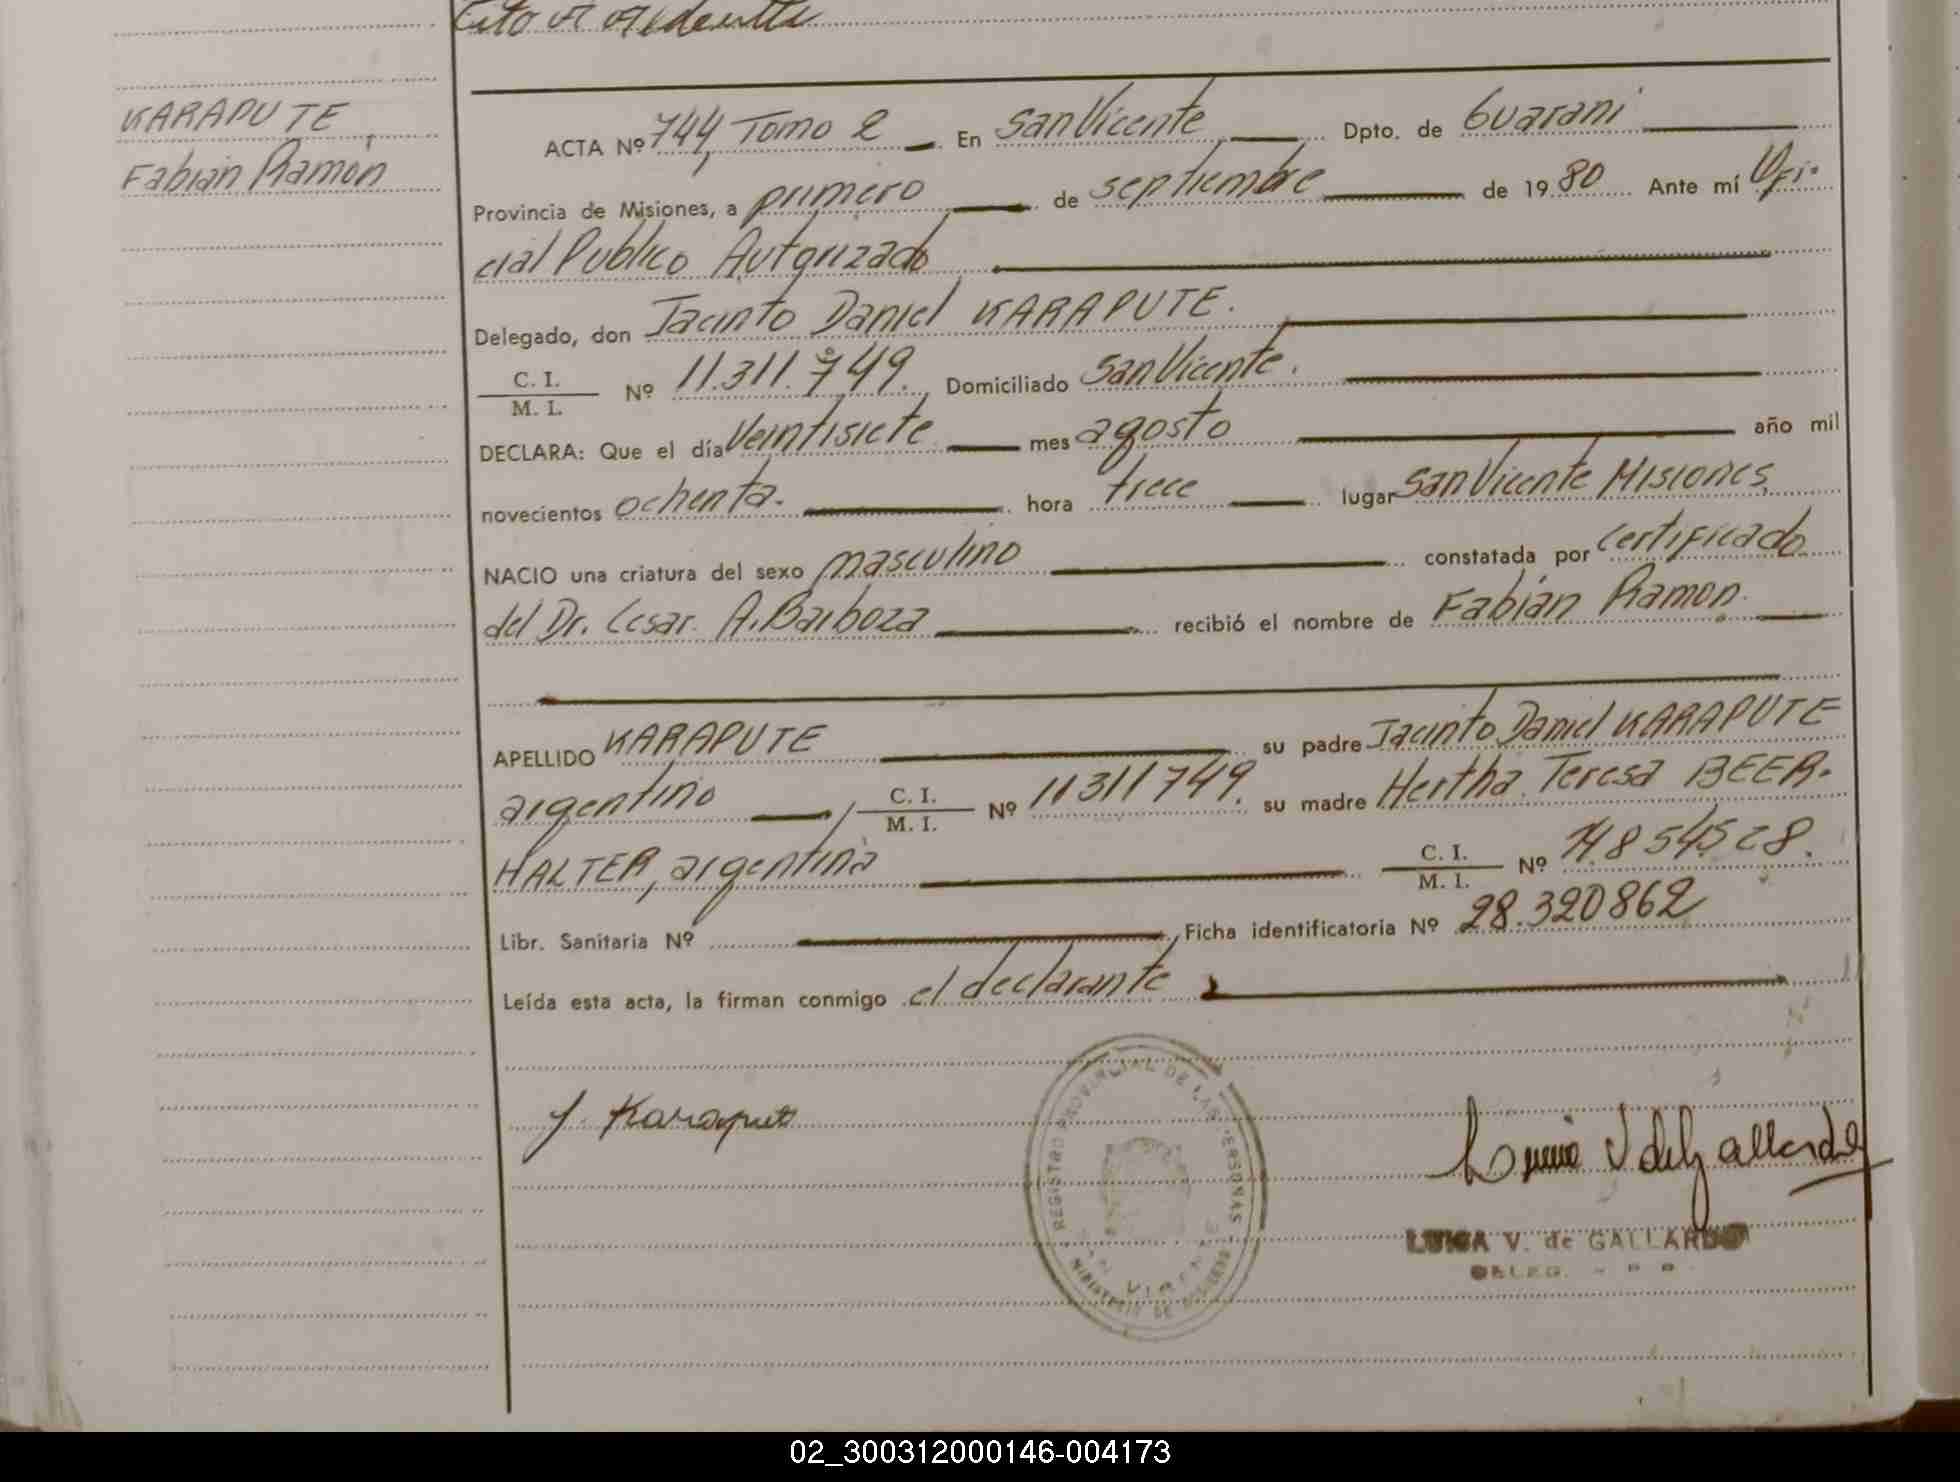 KARAPUTE
Fabián Ramón
ACTA Nº 744, Tomo 2 En San Vicente Dpto. de Guaraní
Provincia de Misiones, a primero de septiembre de 1980 Ante mí Ofi-
cial Publico Autorizado
Delegado, don Jacinto Daniel KARAPUTE.
C. I.
M. I. Nº 11.311.749. Domiciliado San Vicente.
DECLARA: Que el día Veintisiete mes agosto año mil
novecientos ochenta. hora trece lugar San Vicente Misiones
NACIO una criatura del sexo masculino constatada por certificado
del Dr. Cesar A. Barboza recibió el nombre de Fabián Ramon.
APELLIDO KARAPUTE su padre Jacinto Daniel KARAPUTE
argentino, C. I. M. I. Nº 11311749. su madre Hertha Teresa BEER-
HALTER, argentina C. I. M. I. Nº 14854528.
Libr. Sanitaria Nº Ficha identificatoria Nº 28.320862
Leída esta acta, la firman conmigo el declarante
J. Karapute
REGISTRO PROVINCIAL DE LAS PERSONAS
SAN VICENTE
MINISTERIO DE GOBIERNO
LUISA V. de GALLARDO
DELEG.
02_300312000146-004173